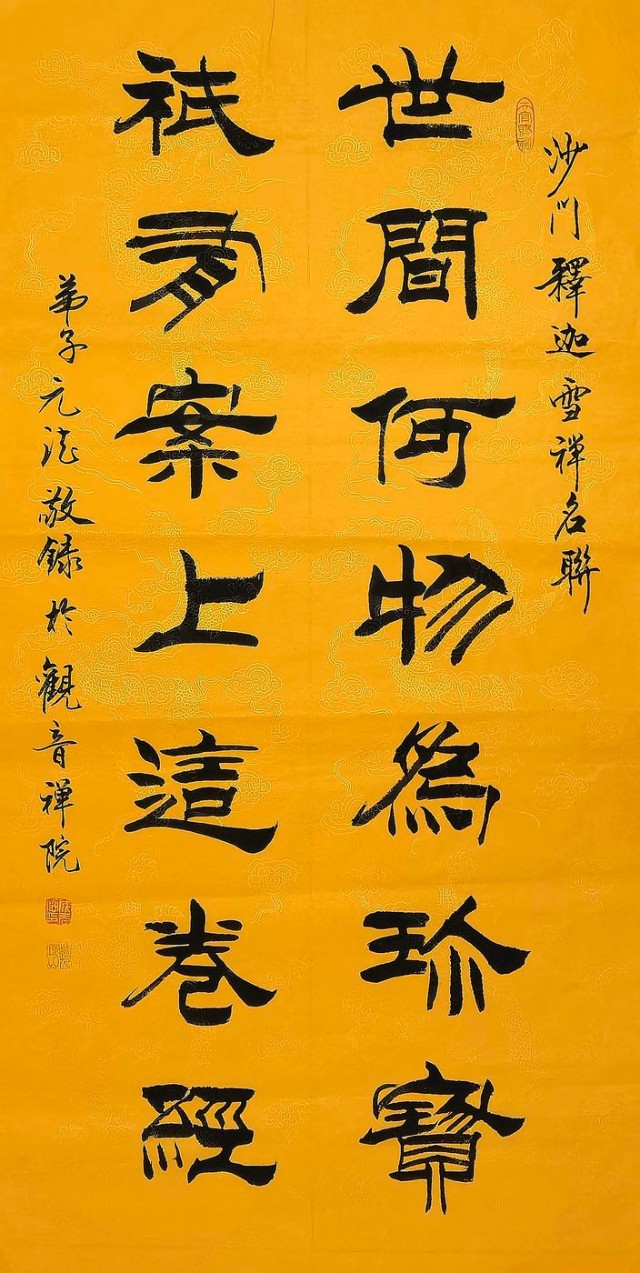 沙門釋迦雪禪名聯
世間何物爲珎寶
祇有案上這卷經
弟子元法敬録於觀音禪院